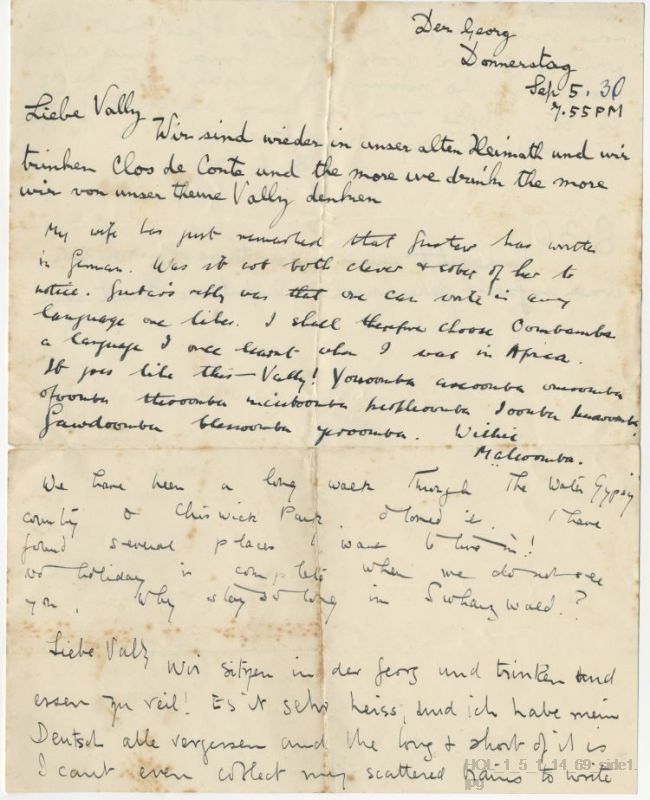 Der Georg
Donnerstag
Sep 5. 30
7.55 PM
Liebe Vally
Wir sind wieder in unser alten Heimath und wir
trinken Clos de Conte und the more we drink the more
wir von unser theure Vally denken
My wife has just remarked that Gustav has written
in German. Was it not both clever & sober of her to
notice. Gustav's reply was that one can write in any
language one likes. I shall therefore choose Oombamba
a language I once learnt when I was in Africa.
It goes like this – Vally! Yououmba
Gawdoomba blessoomba yerooomba. Willie
Malcoomba.
We have been a long walk through the Water Gypsy
country & Chiswick Park, I loved it. I have
found several places I want to live in!
No holiday is complete when we do not see
you. Why stay so long in Schwarzwald?
Liebe Vally
Wir sitzen in der Georg und trinken und
essen zu veil! Es it sehr heiss, und ich habe mein
Deutsch alle vergessen and the long & short of it is
I cant even collect my scattered brains to write
HOL_1_5_1_14_69_side1.
jpg